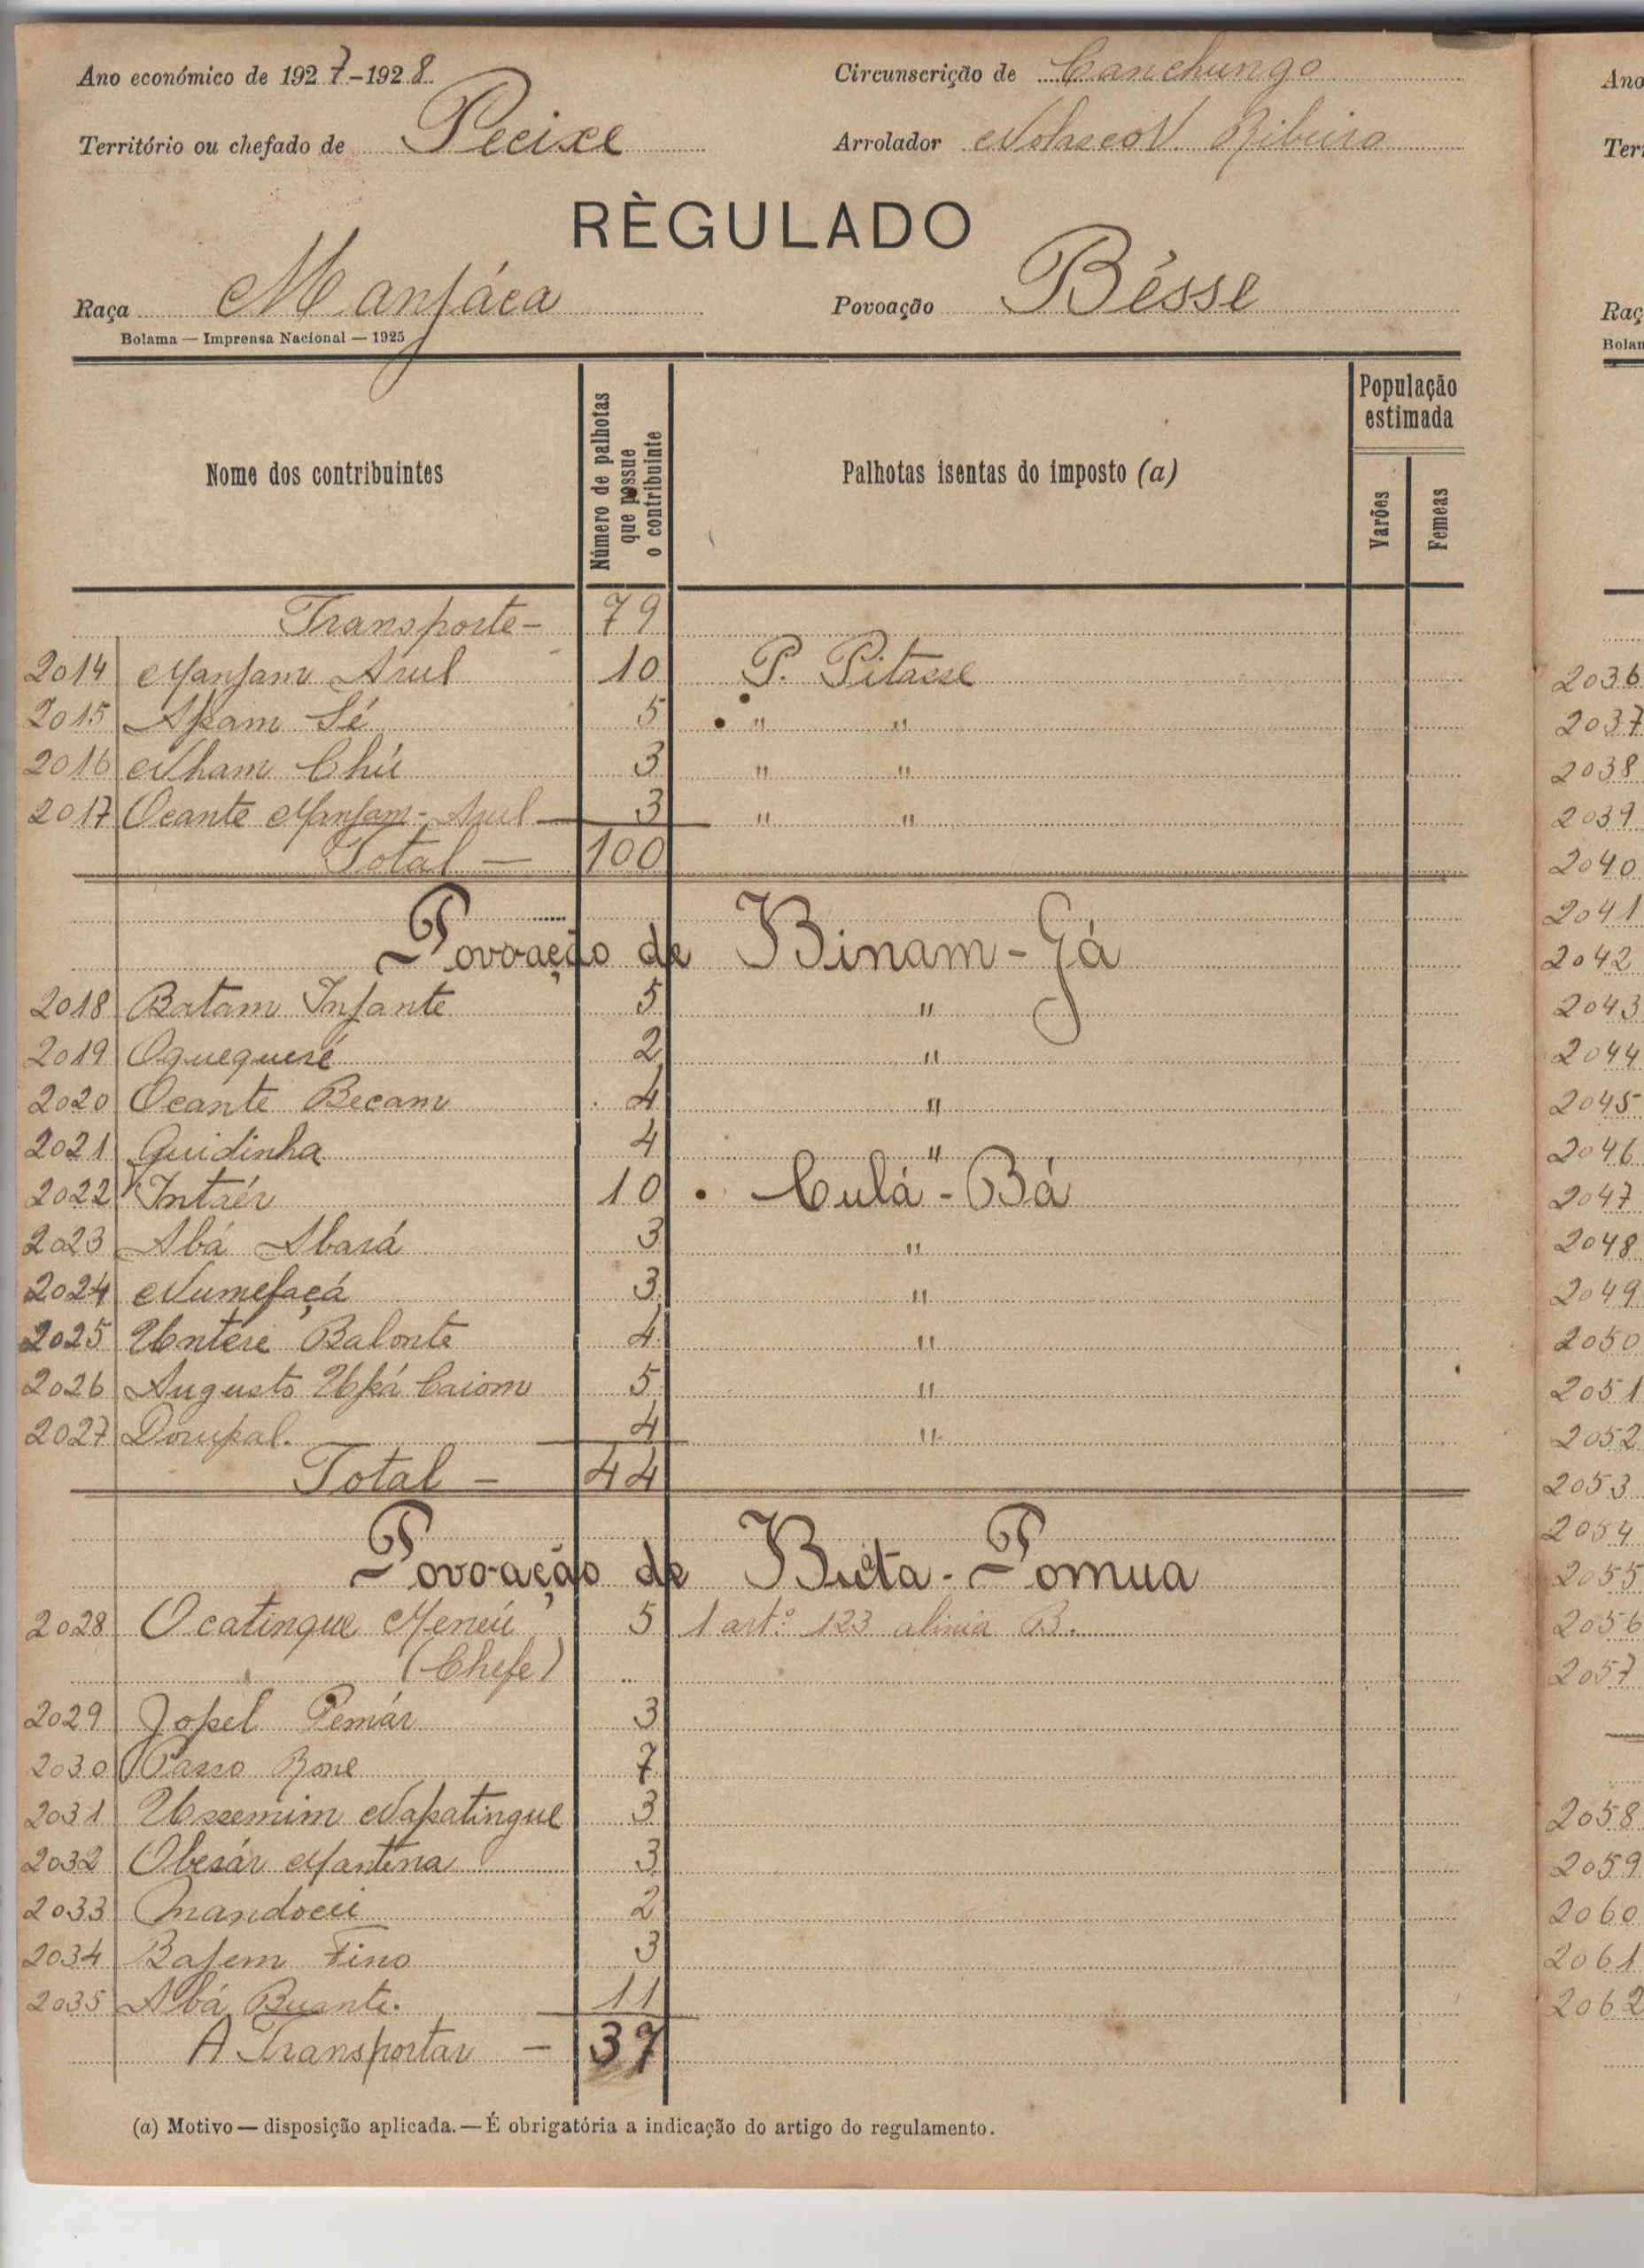 Ano económico de 1927-1928.
Circunscrição de Canchungo
Território ou chefado de Pecixe
Arrolador Nolasco N. Ribeiro
RÈGULADO
Raça Manjáca
Povoação Bésse
Bolama — Imprensa Nacional — 1925
Nome dos contribuintes
Número de palhotas que possue o contribuinte
Palhotas isentas do imposto (a)
População estimada
Varões
Femeas
Transporte - 79
2014 Manjam Arul 10 P. Pitasse
2015 Apam Sé 5 " "
2016 Nham Chú 3 " "
2017 Ocante Manjam-Arul 3 " "
Total — 100
Povoação de Binam-Gá
2018 Batam Infante 5 "
2019 Oquequeré 2 "
2020 Ocante Becam 4 "
2021 Quidinha 4 "
2022 Intaér 10 Culá-Bá
2023 Abá Abará 3 "
2024 Numefaçá 3 "
2025 Untére Balonte 4 "
2026 Augusto Upá Caiom 5 "
2027 Dorupal. 4 "
Total - 44
Povoação de Buéta-Pomua
2028 Ocatingue Meneú 5 1 artº 123 alinia B.
(Chefe)
2029 Jopel Pemár 3
2030 Passo Rone 7
2031 Ussemim Napatingue 3
2032 Obesár Mantena 3
2033 Mandocú 2
2034 Bajem Fino 3
2035 Abá Buante. 11
A Transportar — 37
(a) Motivo — disposição aplicada. — É obrigatória a indicação do artigo do regulamento.
Ano
Ter
Raç
Bolam
2036
2037
2038
2039
2040
2041
2042
2043
2044
2045
2046
2047
2048
2049
2050
2051
2052
2053
2054
2055
2056
2057
2058
2059
2060
2061
2062